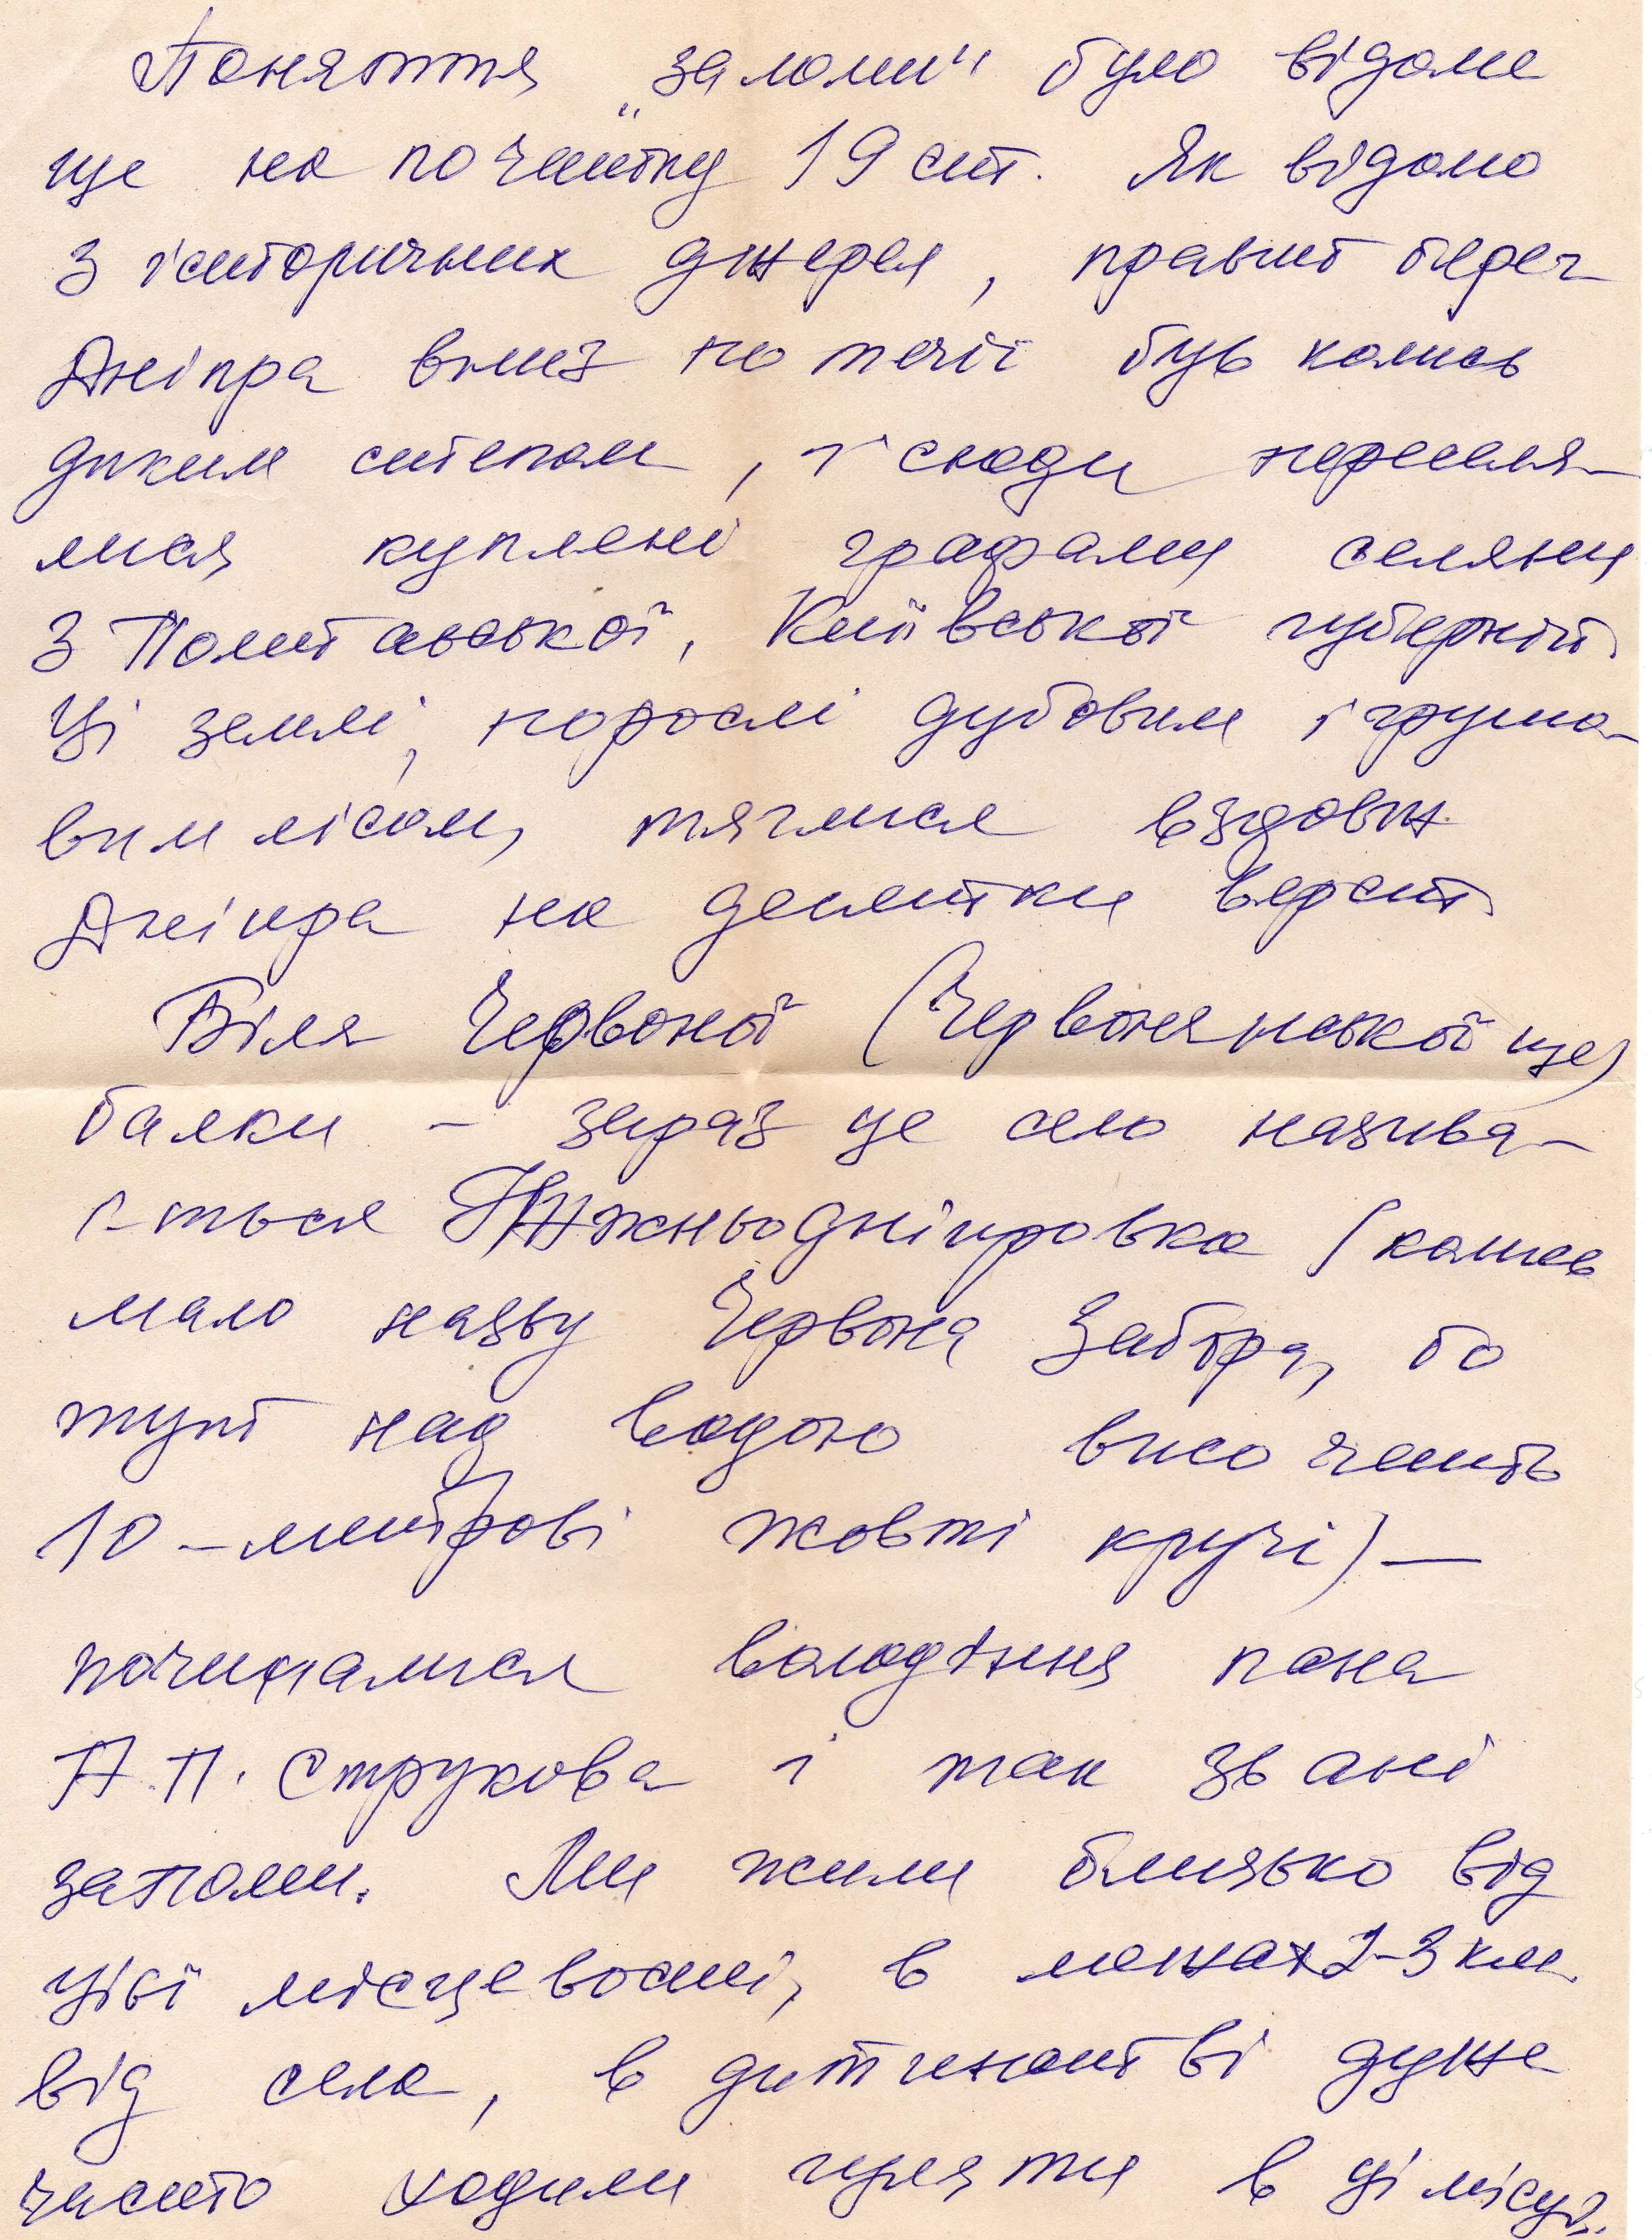 Поняття „заломи" було відоме
ще на початку 19 ст. Як відомо
з історичних джерел, правий берег
Дніпра вниз по течії був колись
диким степом, і сюди переселя-
лися куплені графами селяни
з Полтавської, Київської губерній.
Ці землі, порослі дубовим і груше-
вим лісом, тяглися вздовж
Дніпра на десятки верст.
Біля Червоної (Червонянської ще)
балки – зараз це село назива-
є-ться Нижньодніпровка (колись
мало назву Червона Забора, бо
тут над водою височать
10-метрові жовті кручі) —
починалися володіння пана
А.П. Струкова і так звані
заломи. Ми жили близько від
цієї місцевості, в межах 2-3 км
від села, в дитинстві дуже
часто ходили гуляти в ці місця.